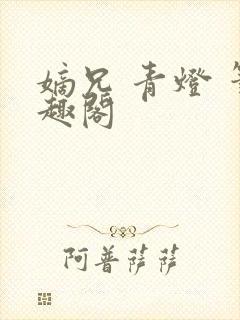 嫡兄 青燈
趣閣
阿普薩薩